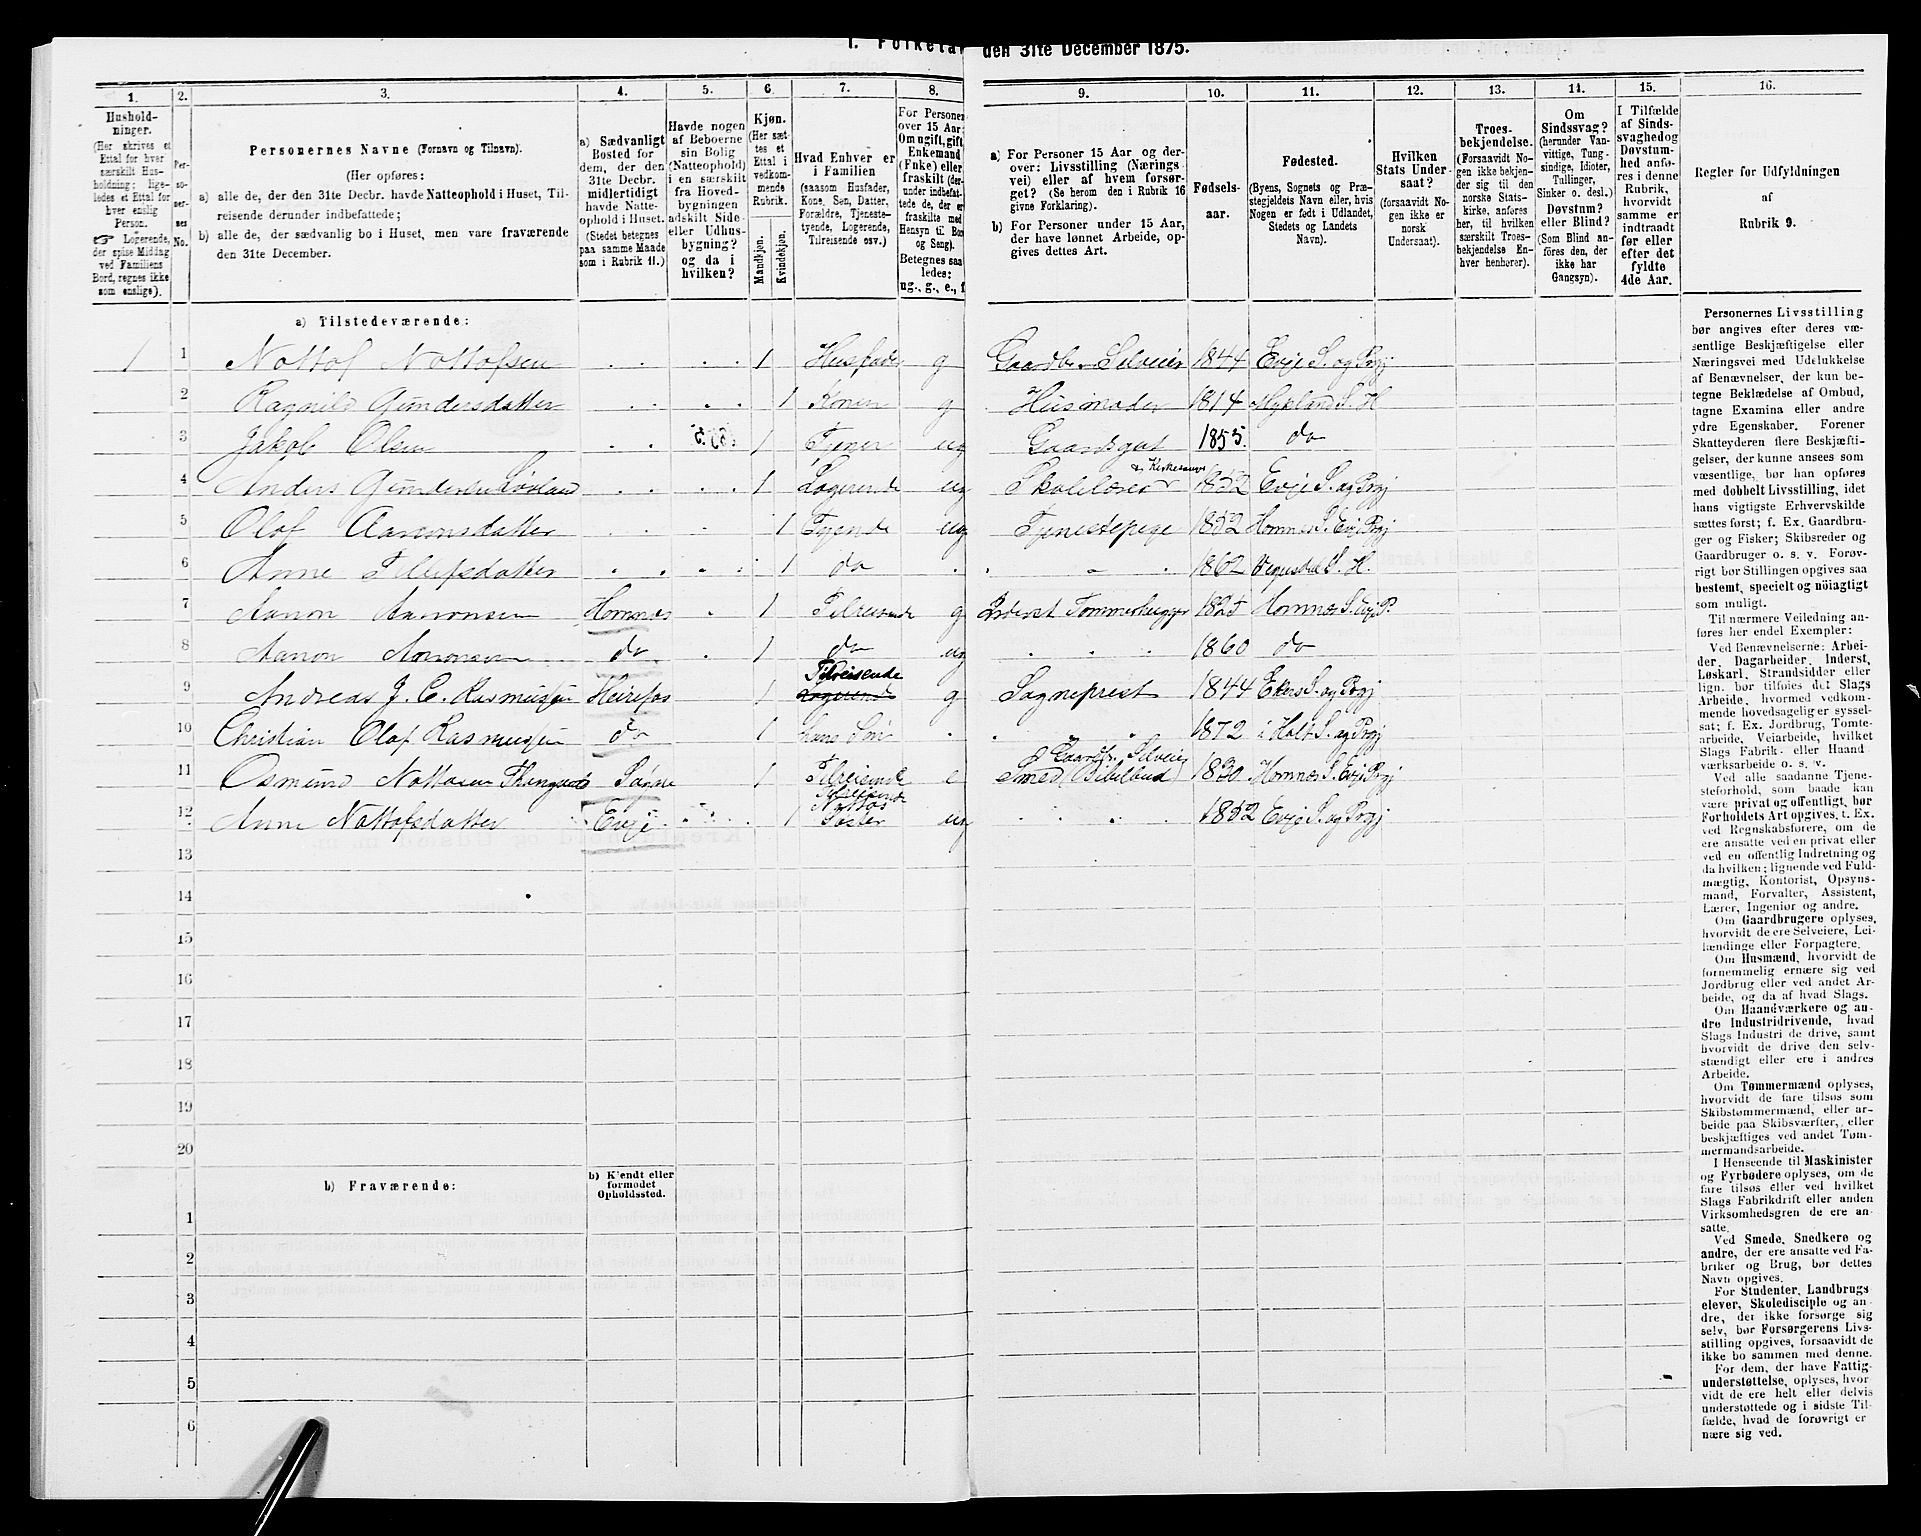 1. Folketal den 31te December 1875.
1. 2. 3. 4. 5. 6. 7. 8. 9. 10. 11. 12. 13. 14. 15. 16.
Hushold-
ninger.
(Her skrives et
Ettal for hver
særskilt Hus-
holdning; lige-
ledes et Ettal for
hver enslig
Person.
☞ Logerende,
der spise Middag
ved Familiens
Bord, regnes ikke
som enslige).
Per-
so-
ner-
nes
No.
Personernes Navne (Fornavn og Tilnavn).
(Her opføres:
a) alle de, der den 31te Decbr. havde Natteophold i Huset, Til-
reisende derunder indbefattede;
b) alle de, der sædvanlig bo i Huset, men vare fraværende
den 31te December.
a) Sædvanligt
Bosted for
dem, der den
31te Decbr.
midlertidigt
havde Natte-
ophold i Huset.
(Stedet betegnes
paa samme Maade
som i Rubrik 11.)
Havde nogen
af Beboerne
sin Bolig
(Natteophold)
i en særskilt
fra Hoved-
bygningen
adskilt Side-
eller Udhus-
bygning?
og da i
hvilken?
Kjøn.
(Her sæt-
tes et
Ettal i
vedkom-
mende
Rubrik.
Mandkjøn.
Kvindekjøn.
Hvad Enhver er
i Familien
(saasom Husfader,
Kone, Søn, Datter,
Forældre, Tjeneste-
tyende, Logerende,
Tilreisende osv.)
For Personer
over 15 Aar:
Om ugift, gift,
Enkemand
(Enke) eller
fraskilt (der-
under indbefat-
tede de, der er
fraskilte med
Hensyn til Bord
og Seng).
Betegnes saa-
ledes:
ug., g., e., f.
a) For Personer 15 Aar og der-
over: Livsstilling (Nærings-
vei) eller af hvem forsør-
get? (Se herom den i Rubrik 16
givne Forklaring).
b) For Personer under 15 Aar,
der have lønnet Arbeide, op-
gives dettes Art.
Fødsels-
aar.
Fødested.
(Byens, Sognets og Præ-
stegjeldets Navn eller, hvis
Nogen er født i Udlandet,
Stedets og Landets
Navn).
Hvilken
Stats Under-
saat?
(forsaavidt No-
gen ikke er
norsk
Undersaat).
Troes-
bekjendelse.
(Forsaavidt No-
gen ikke bekjen-
der sig til den
norske Stats-
kirke, anføres
her, til hvilken
særskilt Troes-
bekjendelse En-
hver henhører).
Om
Sindssvag?
(herunder Van-
vittige, Tung-
sindige, Idioter,
Tullinger,
Sinker o. desl.)
Døvstum?
eller Blind?
(Som Blind an-
føres den, der
ikke har
Gangsyn).
I Tilfælde
af Sinds-
svaghed og
Døvstum-
hed anfø-
res i denne
Rubrik,
hvorvidt
samme er
indtraadt
før eller
efter det
fyldte
4de Aar.
Regler for Udfyldningen
af
Rubrik 9.
a) Tilstedeværende:
1 1 Nottof Nottofsen 1 Husfader g Gaardbr. Selveier 1844 Evje S. og Prgj
2 Ragnild Gundersdatter 1 Konen g Husmoder 1814 Hykland S. H
3 Jakob Olsen 1 Tjener ug Gaardsgut 1855. do
4 Anders Gundersen 1 Logerende ug Skolelærer & Kirkesanger 1852 Evje S. og Prgj
5 Olaf Aaronsdatter 1 Tyende ug Tjenestepige 1852 Hornnes S. Evje Prgj
6 Anne Tellefsdatter 1 do 1862 Vegusdal S. H.
7 Aanon Aanonsen Hornnes 1 Tilreisende g Tømmerhugger 1825 Hornnes S. Evje P.
8 Aanon Aanonsen do 1 do ug 1860 do
9 Andreas J. C. Rasmussen Heirefos 1 Tilreisende Logerende g Sogneprest 1844 Ekers S. og Prgj
10 Christian Olaf Rasmussen do 1 hans Søn 1872 i Holt S. og Prgj
11 Osmund Nottosen 1 Tilreisende e Smed & Gaardbr. Selveier 1830 Hornnes S. Evje Prgj
12 Anne Nottofsdatter Evje 1 Tilreisende Nottofs Søster ug 1852 Evje S. og Prgj
13
14
15
16
17
18
19
20
b) Fraværende:
b) Kjendt eller
formodet
Opholdssted.
1
2
3
4
5
6
Personernes Livsstilling
bør angives efter deres væ-
sentlige Beskjæftigelse eller
Næringsvei med Udelukkelse
af Benævnelser, der kun be-
tegne Beklædelse af Ombud,
tagne Examina eller andre
ydre Egenskaber. Forener
Skatteyderen flere Beskjæfti-
gelser, der kunne ansees som
væsentlige, bør han opføres
med dobbelt Livsstilling, idet
hans vigtigste Erhvervskilde
sættes først; f. Ex. Gaardbru-
ger og Fisker; Skibsreder og
Gaardbruger o. s. v. Forøv-
rigt bør Stillingen opgives saa
bestemt, specielt og nøiagtigt
som muligt.
Til nærmere Veiledning an-
føres her endel Exempler:
Ved Benævnelserne: Arbei-
der, Dagarbeider, Inderst,
Løskarl, Strandsidder eller
lign. bør tilføies det Slags
Arbeide, hvormed vedkom-
mende hovedsagelig er syssel-
sat; f. Ex. Jordbrug, Tomte-
arbeide, Veiarbeide, hvilket
Slags Fabrik- eller Haand-
værksarbeide o. s. v.
Ved alle saadanne Tjene-
steforhold, som baade kan
være privat og offentligt, bør
Forholdets Art opgives, t. Ex.
ved Regnskabsførere, om de
ere ansatte ved en privat eller
ved en offentlig Indretning og
da hvilken; lignende ved Fuld-
mægtig, Kontorist, Opsyns-
mand, Forvalter, Assistent,
Lærer, Ingeniør og andre.
Om Gaardbrugere oplyses,
hvorvidt de ere Selveiere, Lei-
lændinge eller Forpagtere.
Om Husmænd, hvorvidt de
fornemmelig ernære sig ved
Jordbrug eller ved andet Ar-
beide, og da af hvad Slags.
Om Haandværkere og an-
dre Industridrivende, hvad
Slags Industri de drive, samt
hvorvidt de drive den selv-
stændigt eller ere i andres
Arbeide.
Om Tømmermænd oplyses,
hvorvidt de fare tilsøs som
Skibstømmermænd, eller ar-
beide paa Skibsværfter, eller
beskjæftiges ved andet Tøm-
mermandsarbeide.
I Henseende til Maskinister
og Fyrbødere oplyses, om de
fare tilsøs eller ved hvilket
Slags Fabrikdrift eller anden
Virksomhedsgren de ere an-
satte.
Ved Smede, Snedkere og
andre, der ere ansatte ved Fa-
briker og Brug, bør dettes
Navn opgives.
For Studenter, Landbrugs-
elever, Skoledisciple og an-
dre, der ikke forsørge sig
selv, bør Forsørgerens Livs-
stilling opgives, forsaavidt de
ikke bo sammen med denne.
For dem, der have Fattig-
understøttelse, oplyses, hvor-
vidt de ere helt eller delvis
understøttede og i sidste Til-
fælde, hvad de forøvrigt er-
nære sig ved.